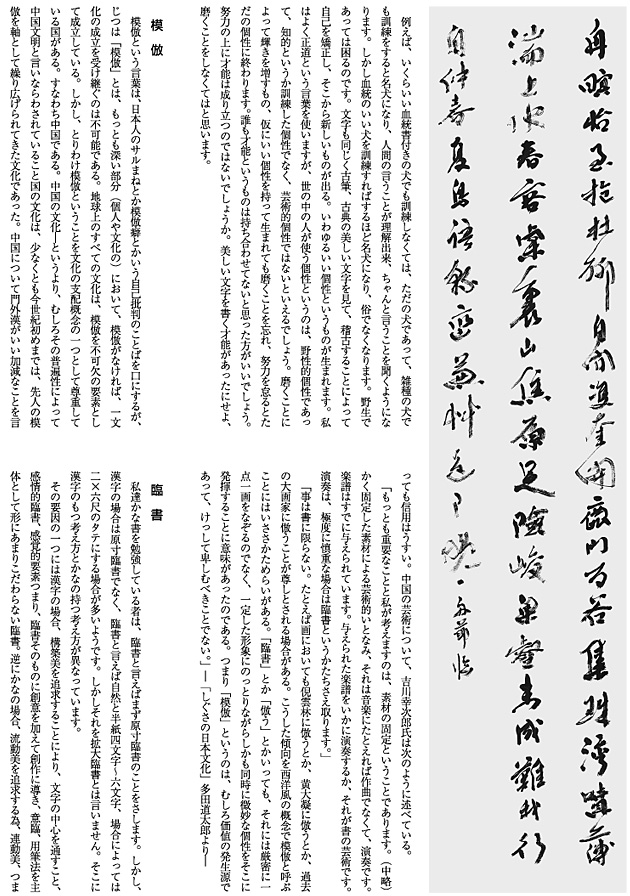 例えば、いくらいい血統書付きの犬でも訓練しなくては、ただの犬であって、雑種の犬で
も訓練をすると名犬になり、人間の言うことが理解出来、ちゃんと言うことを聞くようにな
ります。しかし血統のいい犬を訓練すればするほど名犬になり、俗でなくなります。野生で
あっては困るのです。文字も同じく古筆、古典の美しい文字を見て、稽古することによって
自己を矯正し、そこから新しいものが出る。いわゆるいい個性というものが生まれます。私
はよく正道という言葉を使いますが、世の中の人が使う個性というのは、野性的個性であっ
て、知的というか訓練した個性でなく、芸術的個性ではないといえるでしょう。磨くことに
よって輝きを増すもの、仮にいい個性を持って生まれても磨くことを忘れ、努力を怠るとた
だの個性に終わります。誰も才能というものは持ち合わせてないと思った方がいいでしょう。
努力の上に才能は成り立つのではないでしょうか。美しい文字を書く才能があったにせよ、
磨くことをしなくてはと思います。
模倣
模倣という言葉は、日本人のサルまねとか模倣癖とかいう自己批判のことばを口にするが、
じつは「模倣」とは、もっとも深い部分（個人や文化の）において、模倣がなければ、一文
化の成立を受け継ぐのは不可能である。地球上のすべての文化は、模倣を不可欠の要素とし
て成立している。しかし、とりわけ模倣ということを文化の支配概念の一つとして尊重して
いる国がある。すなわち中国である。中国の文化―というより、むしろその普遍性によって
中国文明と言いならわされていること国の文化は、少なくとも今世紀初めまでは、先人の模
倣を軸として繰り広げられてきた文化であった。中国について門外漢がいい加減なことを言
っても信用はうすい。中国の芸術について、吉川幸次郎氏は次のように述べている。
「もっとも重要なことと私が考えますのは、素材の固定ということであります。（中略）
かく固定した素材による芸術的いとなみ、それは音楽にたとえれば作曲でなくて、演奏です。
楽譜はすでに与えられています。与えられた楽譜をいかに演奏するか、それが書の芸術です。
演奏は、極度に慎重な場合は臨書というかたちさえ取ります。」
「事は書に限らない。たとえば画においても倪雲林に倣うとか、黄大凝に倣うとか、過去
の大画家に倣うことが尊しとされる場合がある。こうした傾向を西洋風の概念で模倣と呼ぶ
ことにはいささかためらいがある。「臨書」とか「倣う」とかいっても、それには厳密に一
点一画をなぞるのでなく、一定した形象にのっとりながらしかも同時に微妙な個性をそこに
発揮することに意味があったのである。つまり「模倣」というのは、むしろ価値の発生源で
あって、けっして卑しむべきことでない。」―「しぐさの日本文化」多田道太郎より―
臨書
私達かな書を勉強している者は、臨書と言えばまず原寸臨書のことをさします。しかし、
漢字の場合は原寸臨書でなく、臨書と言えば自然と半紙四文字～六文字、場合によっては
二×六尺のタテにする場合が多いようです。しかしそれを拡大臨書とは言いません。そこに
漢字のもつ考え方とかなの持つ考え方が異なっています。
その要因の一つには漢字の場合、構築美を追求することにより、文字の中心を通すこと、
感情的臨書、感覚的要素つまり、臨書そのものに創意を加えて創作に導き、意臨、用筆法を主
体として形にあまりこだわらない臨書。逆にかなの場合、流動美を追求する為、連動美、つま